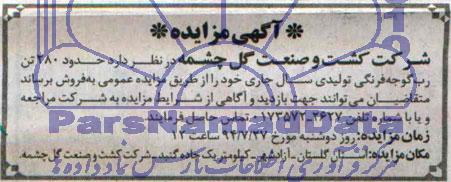 * آگهی مزایده *
شرکت کشت و صنعت گل چشمه در نظر دارد حدود ۲۸۰ تن
رب گوجه فرنگی تولیدی سال جاری خود را از طریق مزایده عمومی به فروش برساند
متقاضیان می توانند جهت بازدید و آگاهی از شرایط مزایده به شرکت مراجعه
و یا با شماره تلفن ۰۱۷۳۵۷۲۰۴۶۲۷ تماس حاصل فرمایند.
زمان مزایده: روز دوشنبه مورخ ۹۴/۷/۲۷ ساعت ۱۳
مکان مزایده: استان گلستان - آزادشهر - کیلومتر یک جاده گنبد - شرکت کشت و صنعت گل چشمه.
ParsNamadData